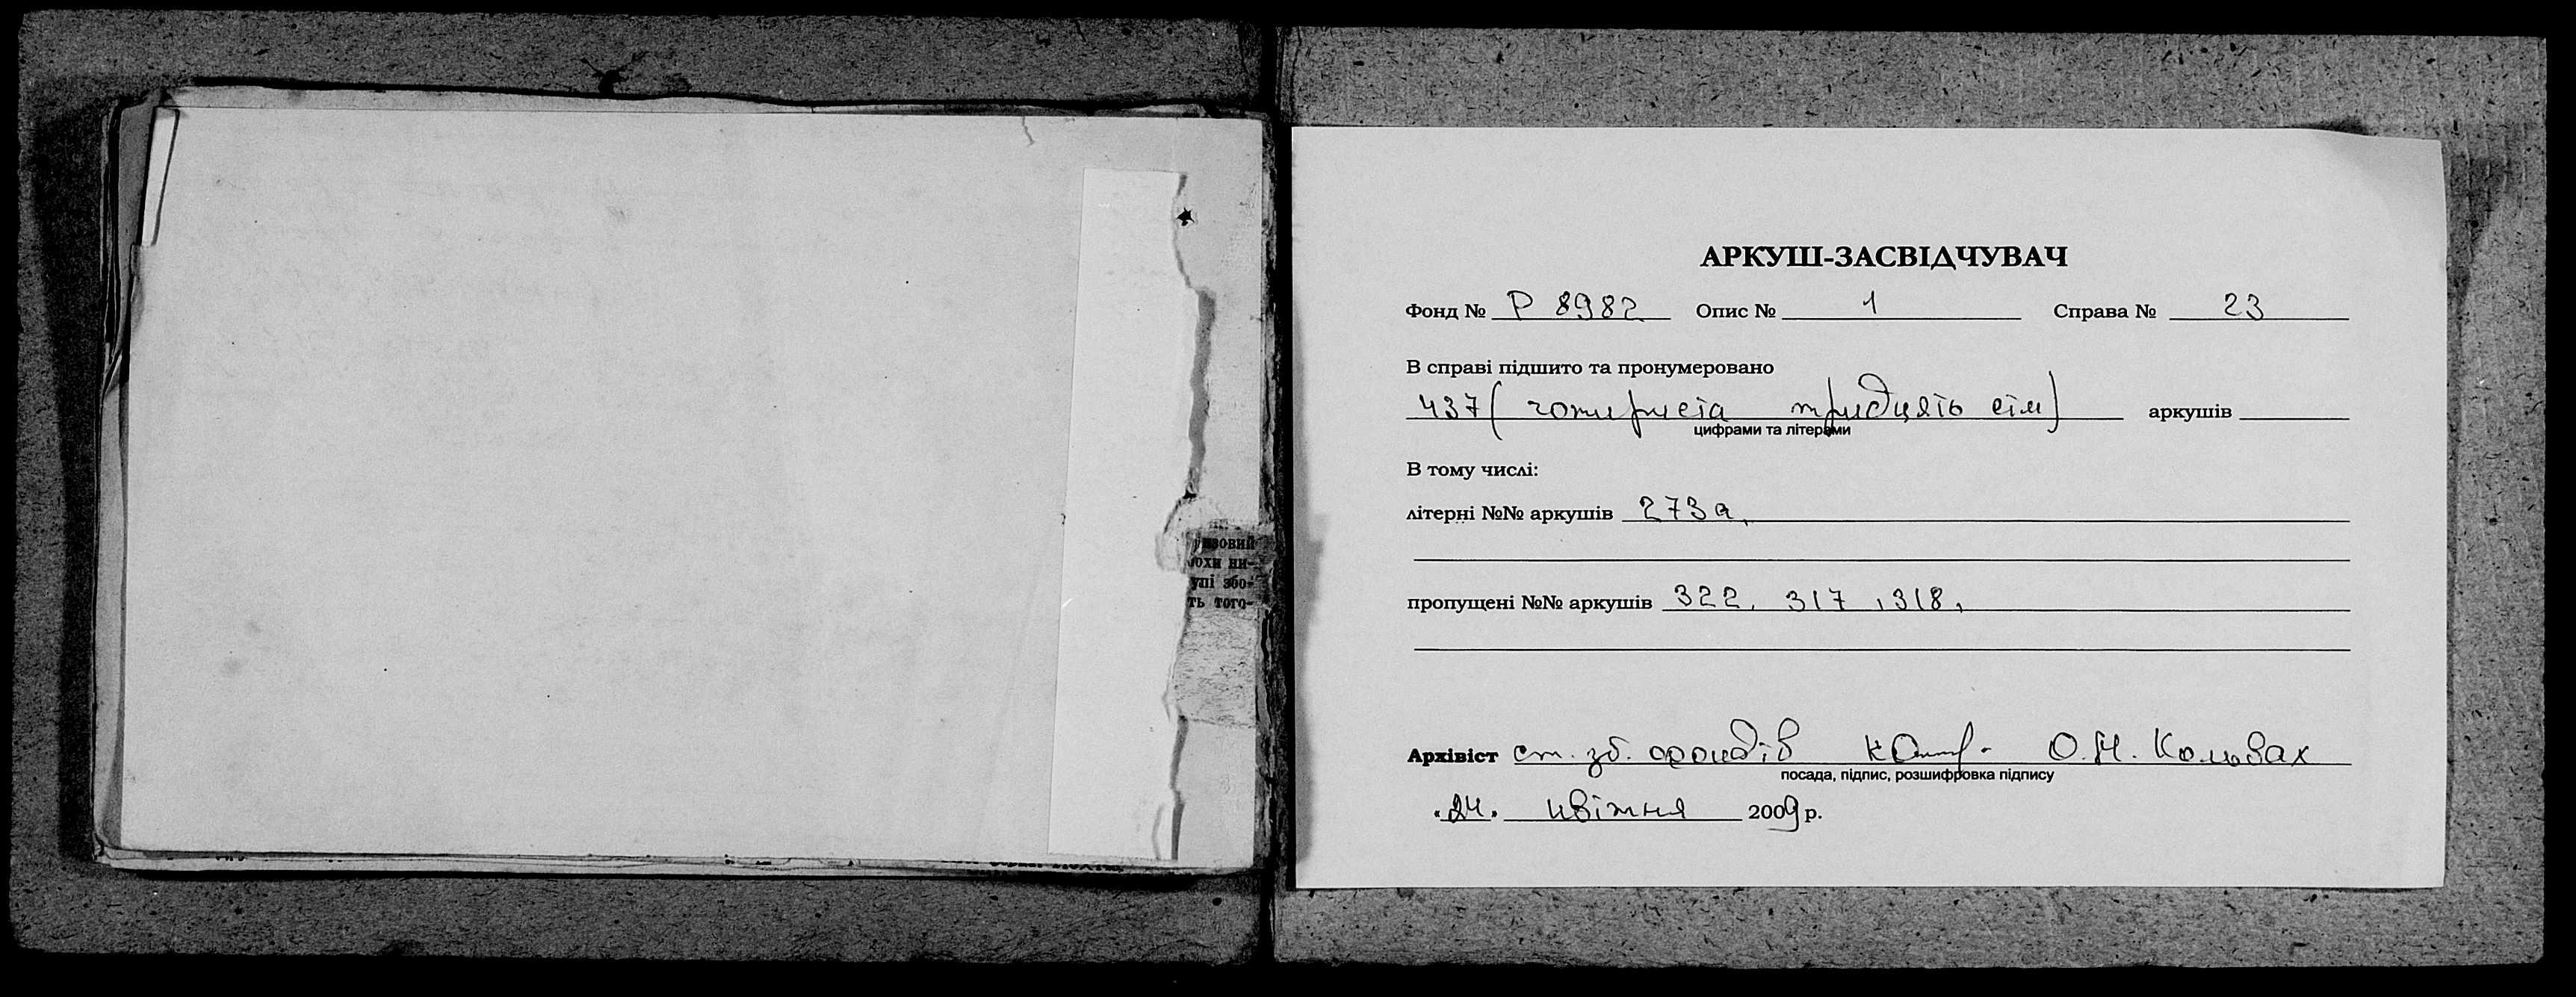 изовий
юхи ни-
упі збо-
ть того-
АРКУШ-ЗАСВІДЧУВАЧ
Фонд № Р 8982 Опис № 1 Справа № 23
В справі підшито та пронумеровано
437 (чотириста тридцять сім) аркушів
цифрами та літерами
В тому числі:
літерні №№ аркушів 273а,
пропущені №№ аркушів 322, 317, 318,
Архівіст ст. зб. фондів О.М. Кользах
посада, підпис, розшифровка підпису
«24» квітня 2009 р.